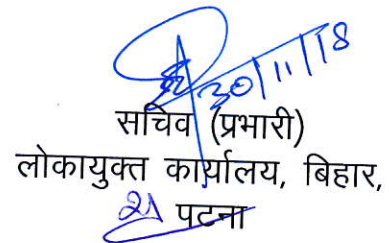 30/11/18
सचिव (प्रभारी)
लोकायुक्त कार्यालय, बिहार,
पटना